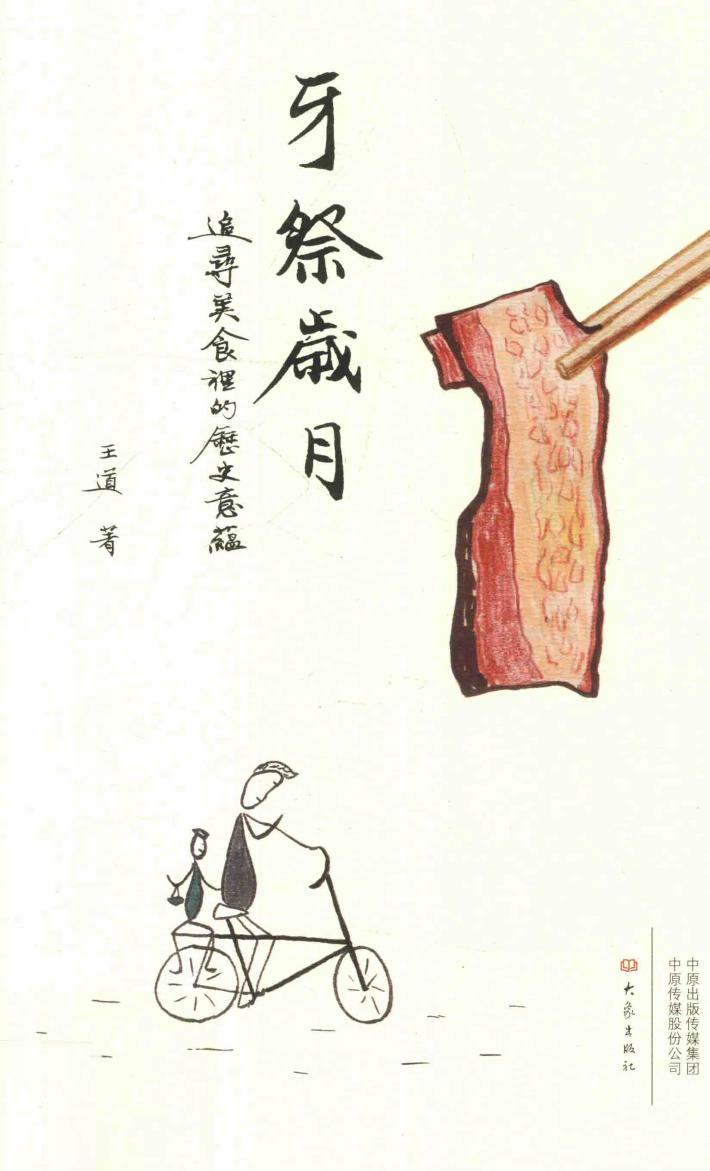 牙祭歲月
追尋美食裡的歷史意蘊
王道 著
中原出版传媒集团
中原传媒股份公司
大象出版社